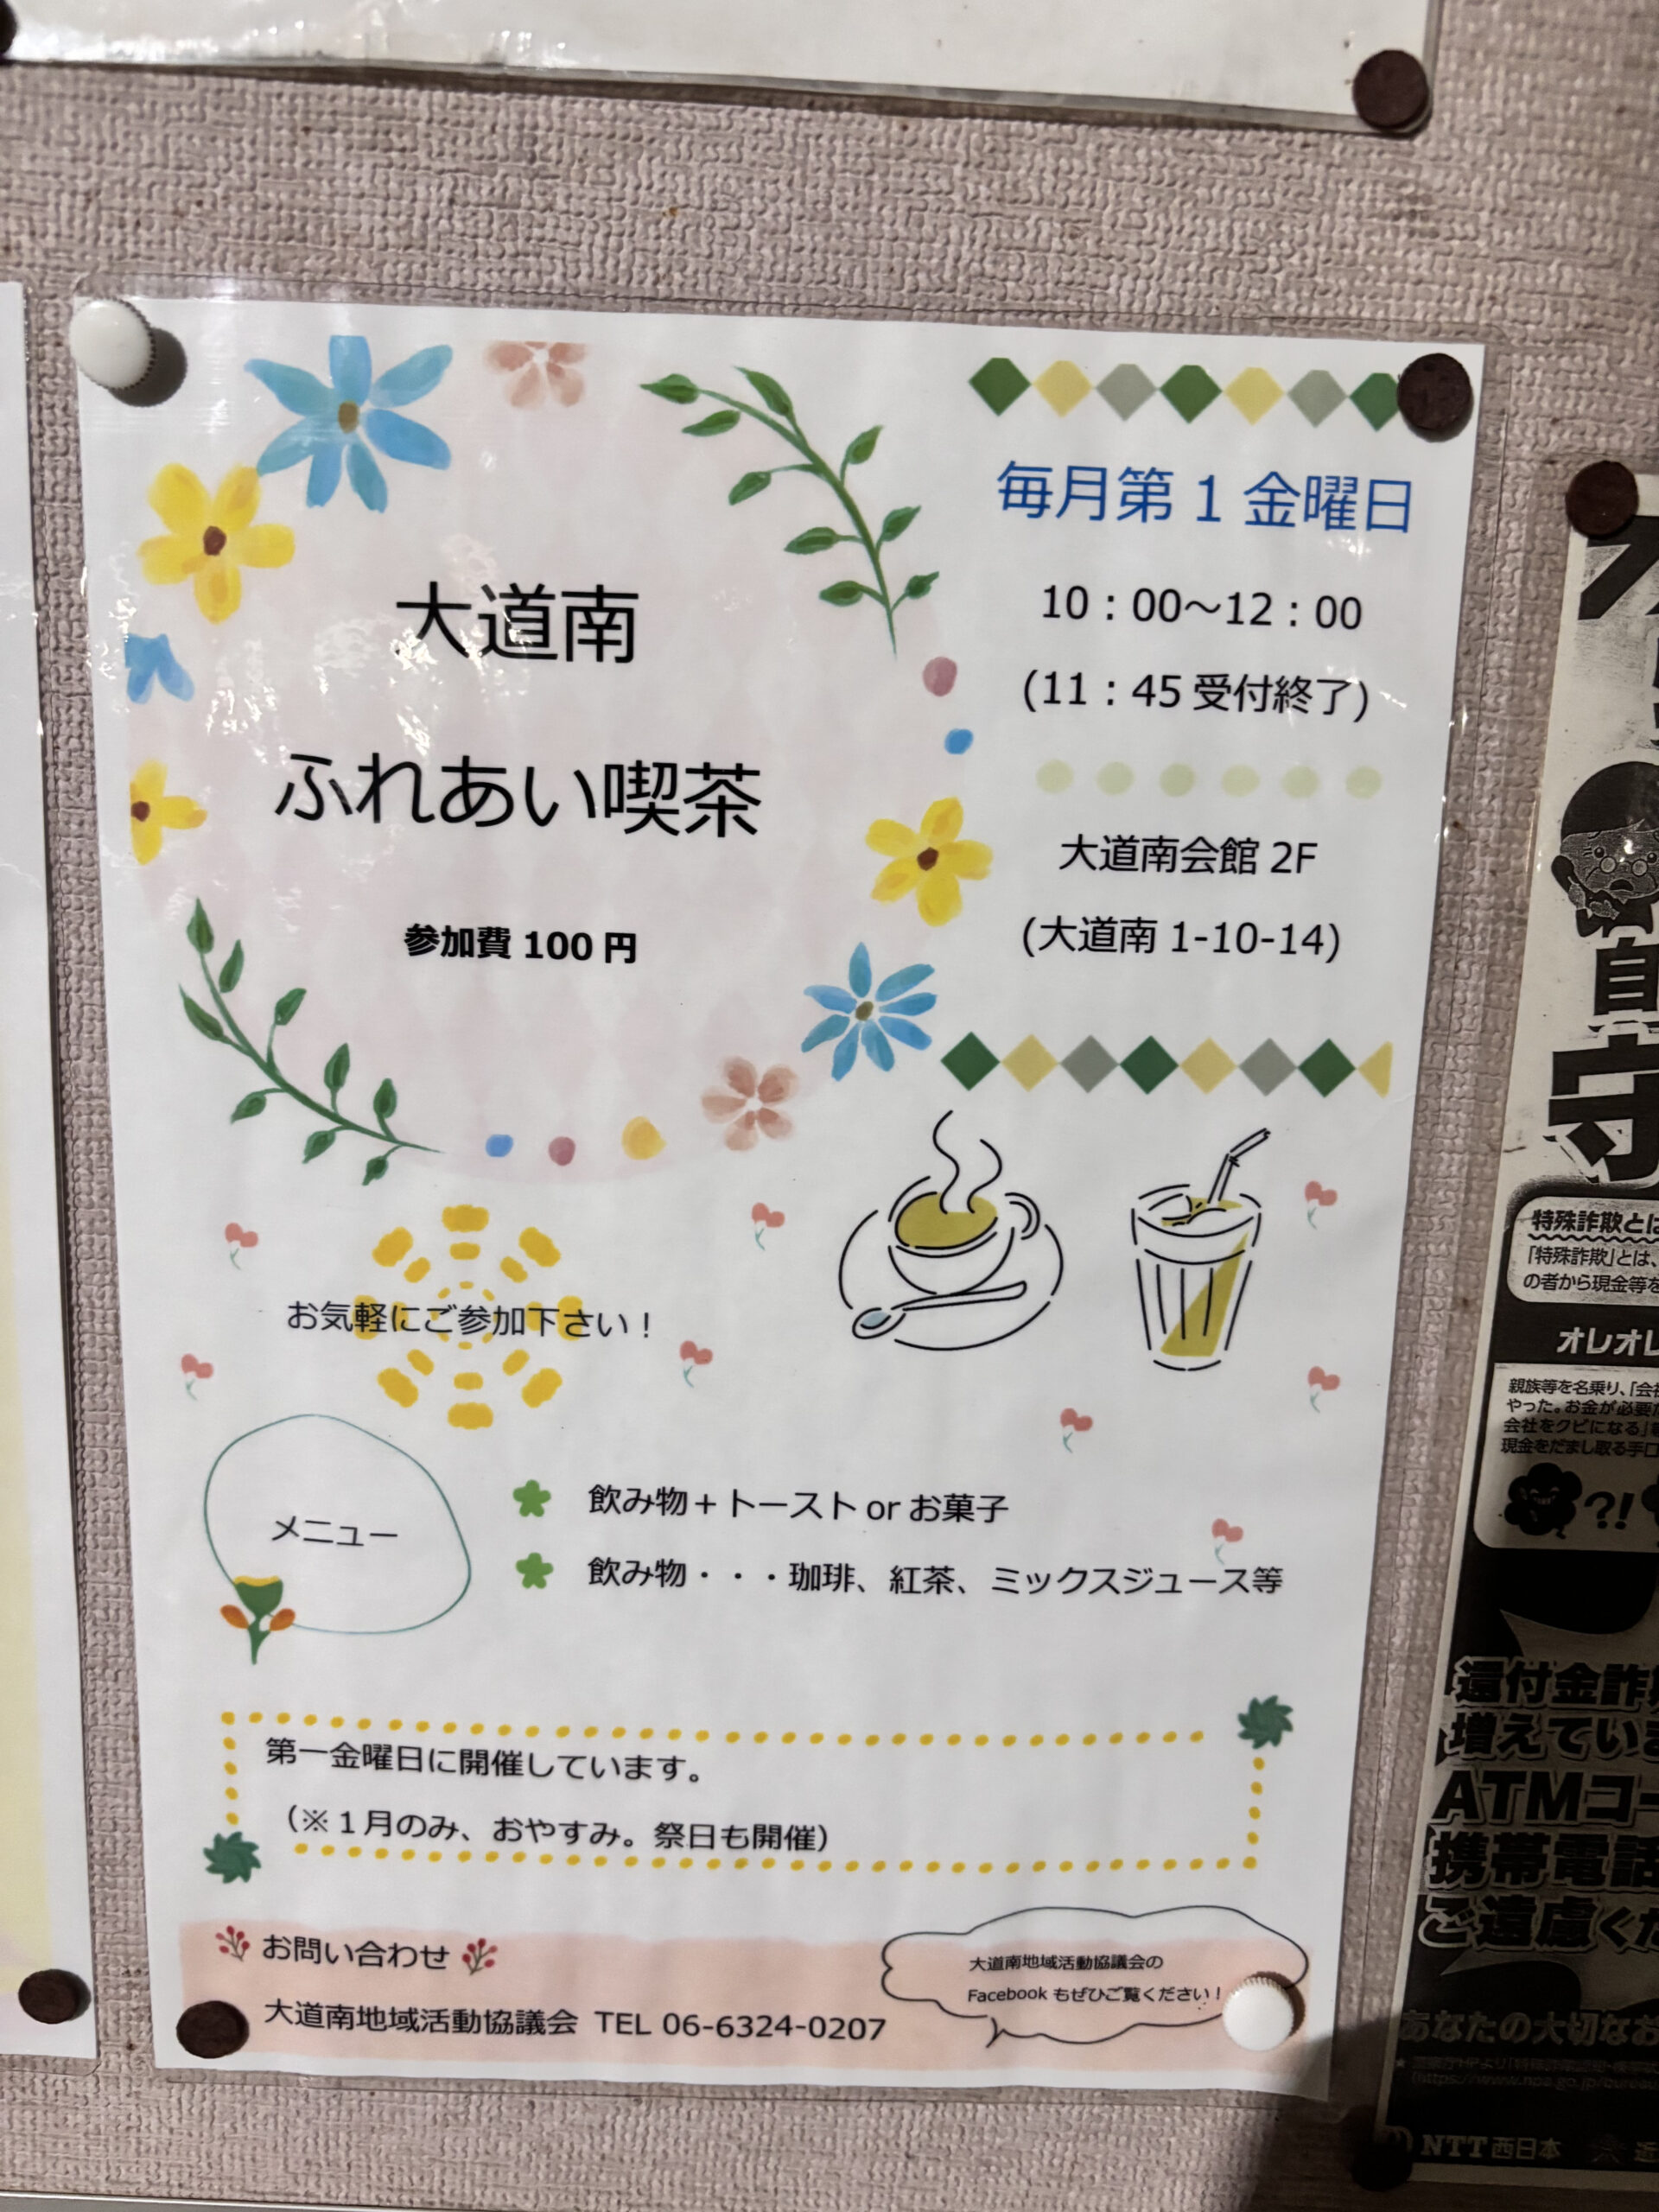 大道南
ふれあい喫茶
参加費 100 円
毎月第 1 金曜日
10：00～12：00
(11：45 受付終了)
大道南会館 2F
(大道南 1-10-14)
お気軽にご参加下さい！
メニュー
飲み物＋トースト or お菓子
飲み物・・・珈琲、紅茶、ミックスジュース等
第一金曜日に開催しています。
（※１月のみ、おやすみ。祭日も開催）
お問い合わせ
大道南地域活動協議会 TEL 06-6324-0207
大道南地域活動協議会の
Facebook もぜひご覧ください！
自
守
特殊詐欺とは
「特殊詐欺」とは、
の者から現金等を
オレオレ
親族等を名乗り、「会社
やった。お金が必要だ
会社をクビになる」等
現金をだまし取る手口
?!
還付金詐欺
増えていま
ATMコー
携帯電話
ご遠慮くだ
あなたの大切なお
NTT西日本